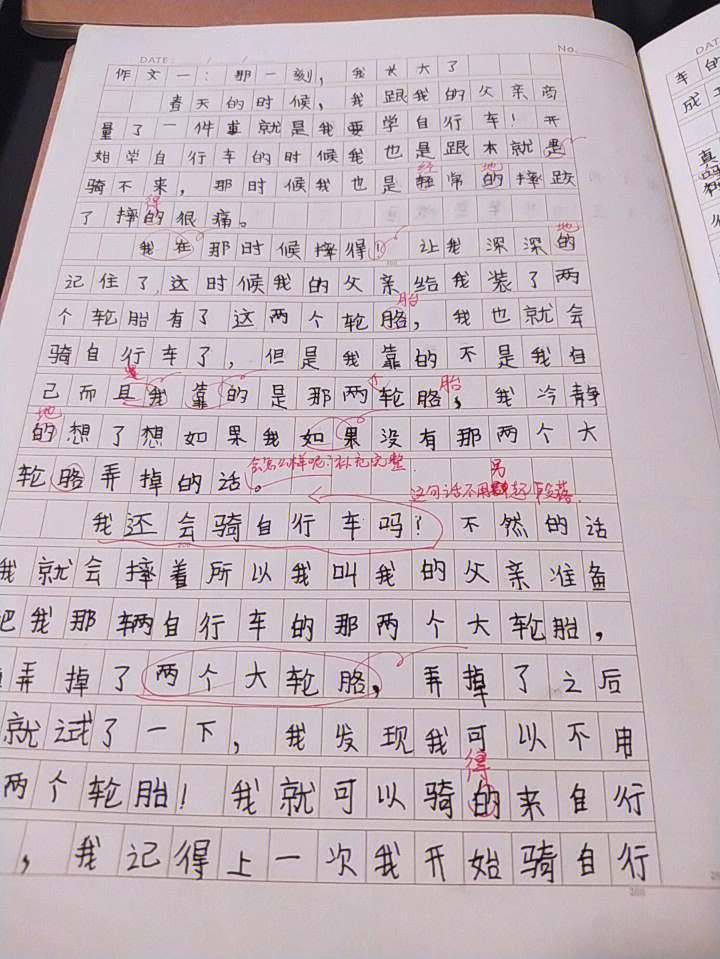 DATE: / /
No.
作文一：那一刻，我长大了
春天的时候，我跟我的父亲商
量了一件事就是我要学自行车！开
始学自行车的时候我也是跟本就是
经 地
骑不来，那时候我也是轻常的摔跤
得
了摔的很痛。
地
我在那时候摔得①让我深深的
记住了，这时候我的父亲给我装了两
胎
个轮胎有了这两个轮胳，我也就会
骑自行车了，但是我靠的不是我自
是 胎
己而且我靠的是那两轮胳，我冷静
地
的想了想如果我如果没有那两个大
轮胳弄掉的话。
会怎么样呢？补充完整
这句话不用另起段落
我还会骑自行车吗？不然的话
我就会摔着所以我叫我的父亲准备
把我那辆自行车的那两个大轮胎，
弄掉了两个大轮胳，弄掉了之后
就试了一下，我发现我可以不用
得
两个轮胎！我就可以骑的来自行
，我记得上一次我开始骑自行
DAT
车的
成
真